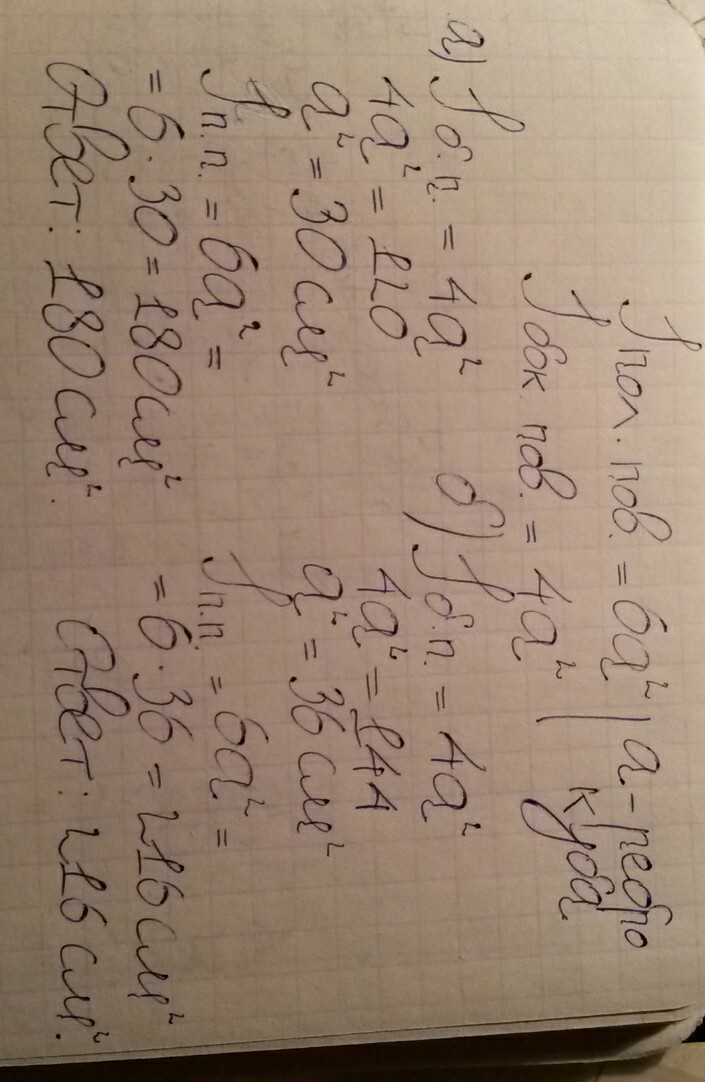 S пол. пов. = 6a² | a - ребро
S бок. пов. = 4a² | куба
а) S б.п. = 4a²
4a² = 120
a² = 30 см²
S п.п. = 6a² =
= 6·30 = 180 см²
Ответ: 180 см².
б) S б.п. = 4a²
4a² = 144
a² = 36 см²
S п.п. = 6a² =
= 6·36 = 216 см²
Ответ: 216 см².